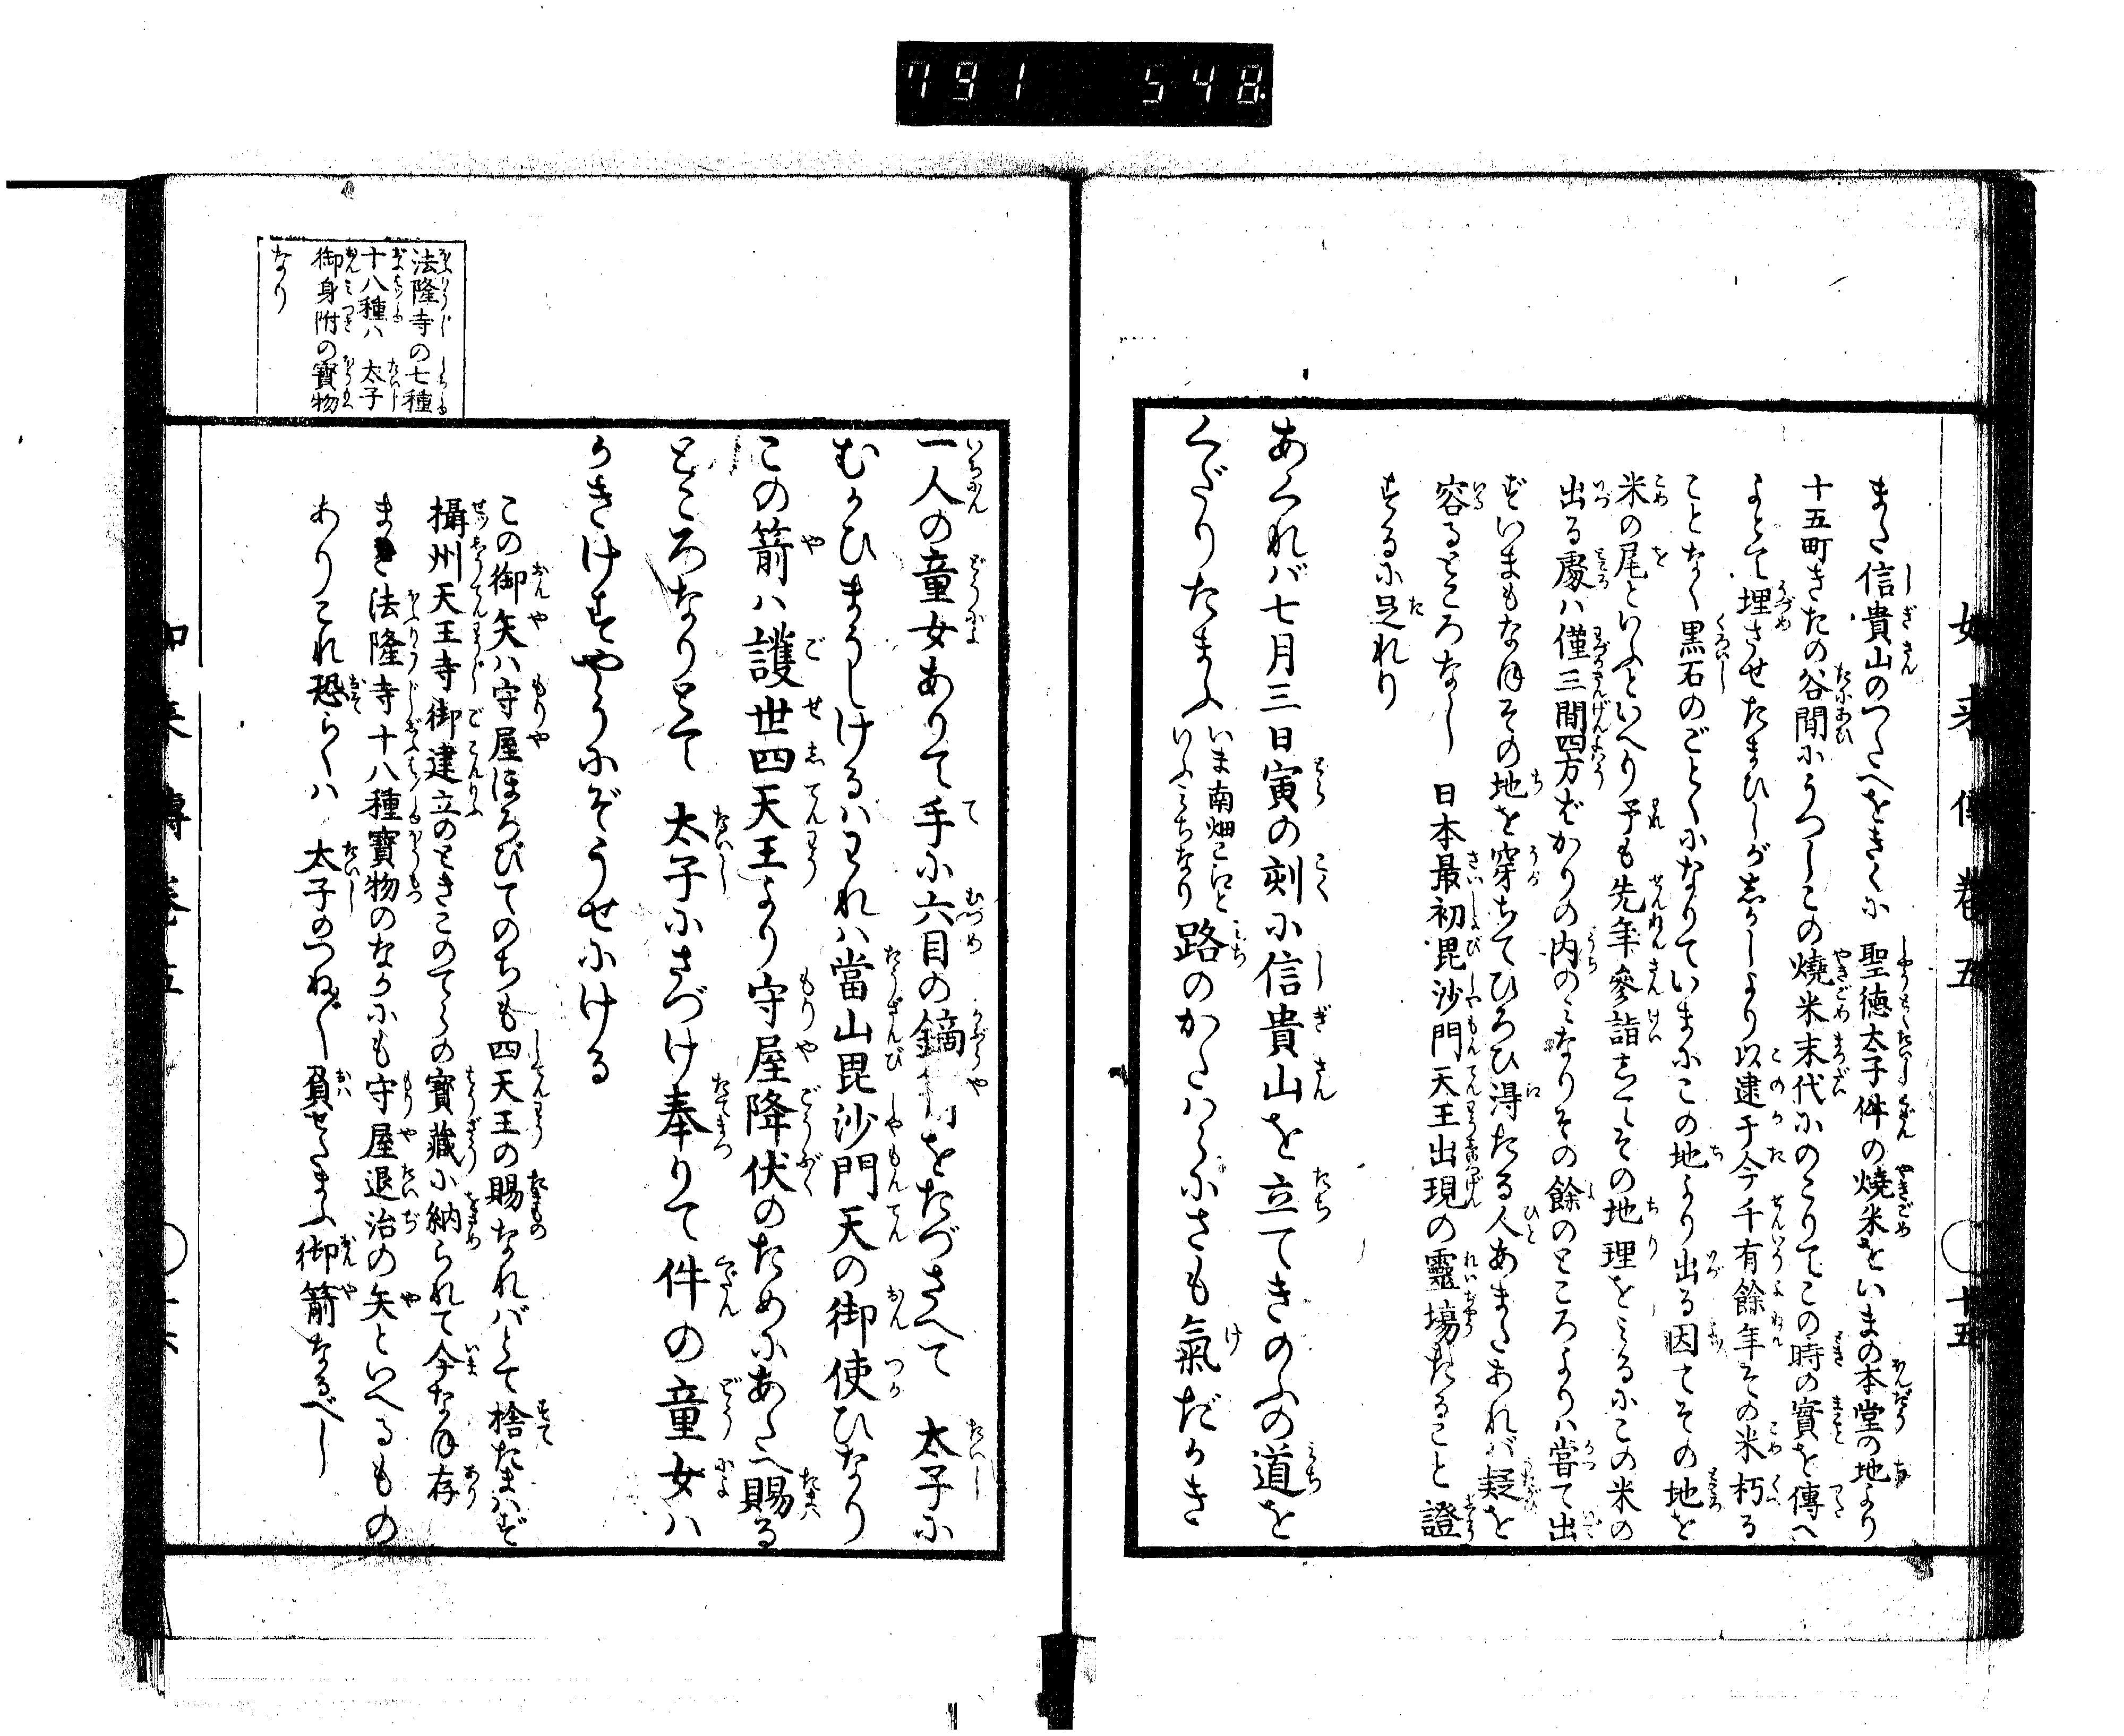 791 548
如來傳卷五 ○ 十五
また信貴山のつたへをきくに 聖徳太子件の燒米をいまの本堂の地より
十五町きたの谷間にうつしこの燒米末代にのこりてこの時の實を傳へ
よとて埋させたまひしがしかしより以逮于今千有餘年その米朽る
ことなく黒石のごとくになりていまにこの地より出る因てその地を
米の尾といふといへり予も先年參詣してその地理をみるにこの米の
出る處ハ僅三間四方ばかりの内のミなりその餘のところよりハ嘗て出
ずいまもなほその地を穿ちてひろひ淂たる人あまたあれバ疑を
容るところなし 日本最初毘沙門天王出現の靈場たること證
するに足れり
あくれバ七月三日寅の刻に信貴山を立てきのふの道を
くだりたまふ いま南畑こえと
いふみちなり 路のかたハらにさも氣だかき
法隆寺の七種
十八種ハ 太子
御身附の寶物
なり
一人の童女ありて手に六目の鏑をたづさへて 太子に
むかひまうしけるハわれハ當山毘沙門天の御使ひなり
この箭ハ護世四天王より守屋降伏のためにあたへ賜る
ところなりとて 太子にさづけ奉りて件の童女ハ
かきけすやうにぞうせにける
この御矢ハ守屋ほろびてのちも四天王の賜なれバとて捨たまハず
攝州天王寺御建立のときこのてらの寶藏に納られて今なほ存
また法隆寺十八種寶物のなかにも守屋退治の矢といへるもの
ありこれ恐らくハ 太子のつねに負せたまふ御箭なるべし
如來傳卷五